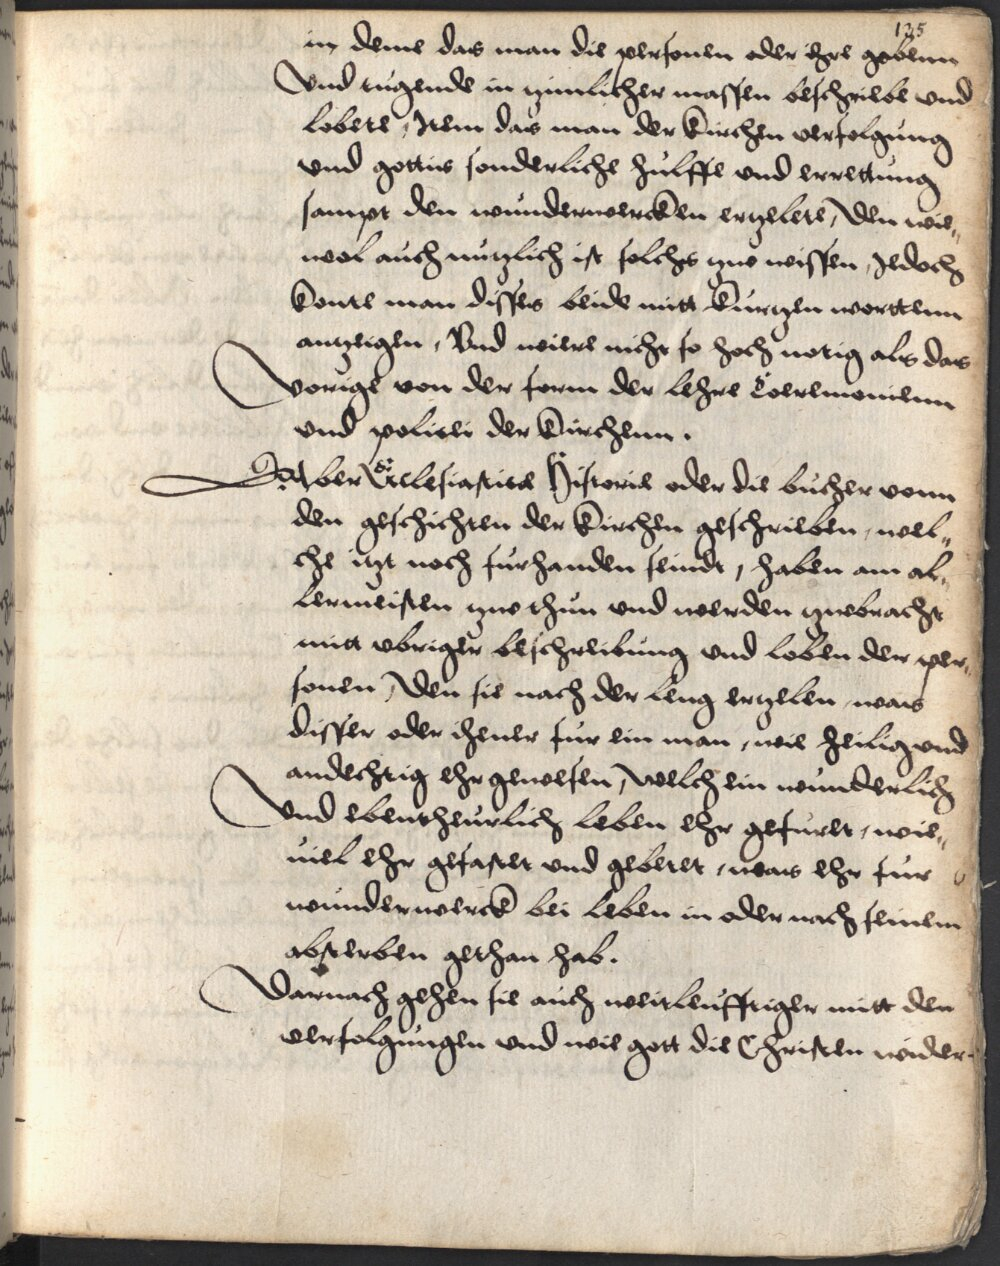 135
in deme das man die personen oder ihre gabenn
Vnd tugende in zimlicher massen beschriebe vnd
lobete, Item das man der Kirchen verfolgung
vnd gottis sonderliche hulffe vnd errettung
sampt den wunderwercken ertzelete, Den wie„
wol auch nutzlich ist solchs zwo wissen, Jedoch
konte man disses beide mitt kurtzen worttenn
antzeigen, Vnd weere nicht so hoch notig als das
Vorige von der form der lehre Coeremonienn
vnd politei der Kirchenn.
Aber Ecclesiastica Historie oder die bucher vonn
den geschichten der Kirchen geschrieben, wel„
che itzt noch furhanden seindt, haben am al„
lermeisten zwo thun vnd werden zwobracht
mitt vbriger beschreibung vnd loben der per„
sonen, Den sie nach der leng ertzelen, was
disser oder ihener fur ein man, wie heilig vnd
andechtig ehr gewesen, welch ein wunderlich
Vnd ebentheurlich leben ehr gefuret, wie„
uiel ehr gefastet vnd gebetet, was ehr fur
wunderwerck bei leben in oder nach seinem
absterben gethan hab.
Darnach gehen sie auch weitleufftiger mitt den
verfolgungen vnd wie gott die Christen wider-